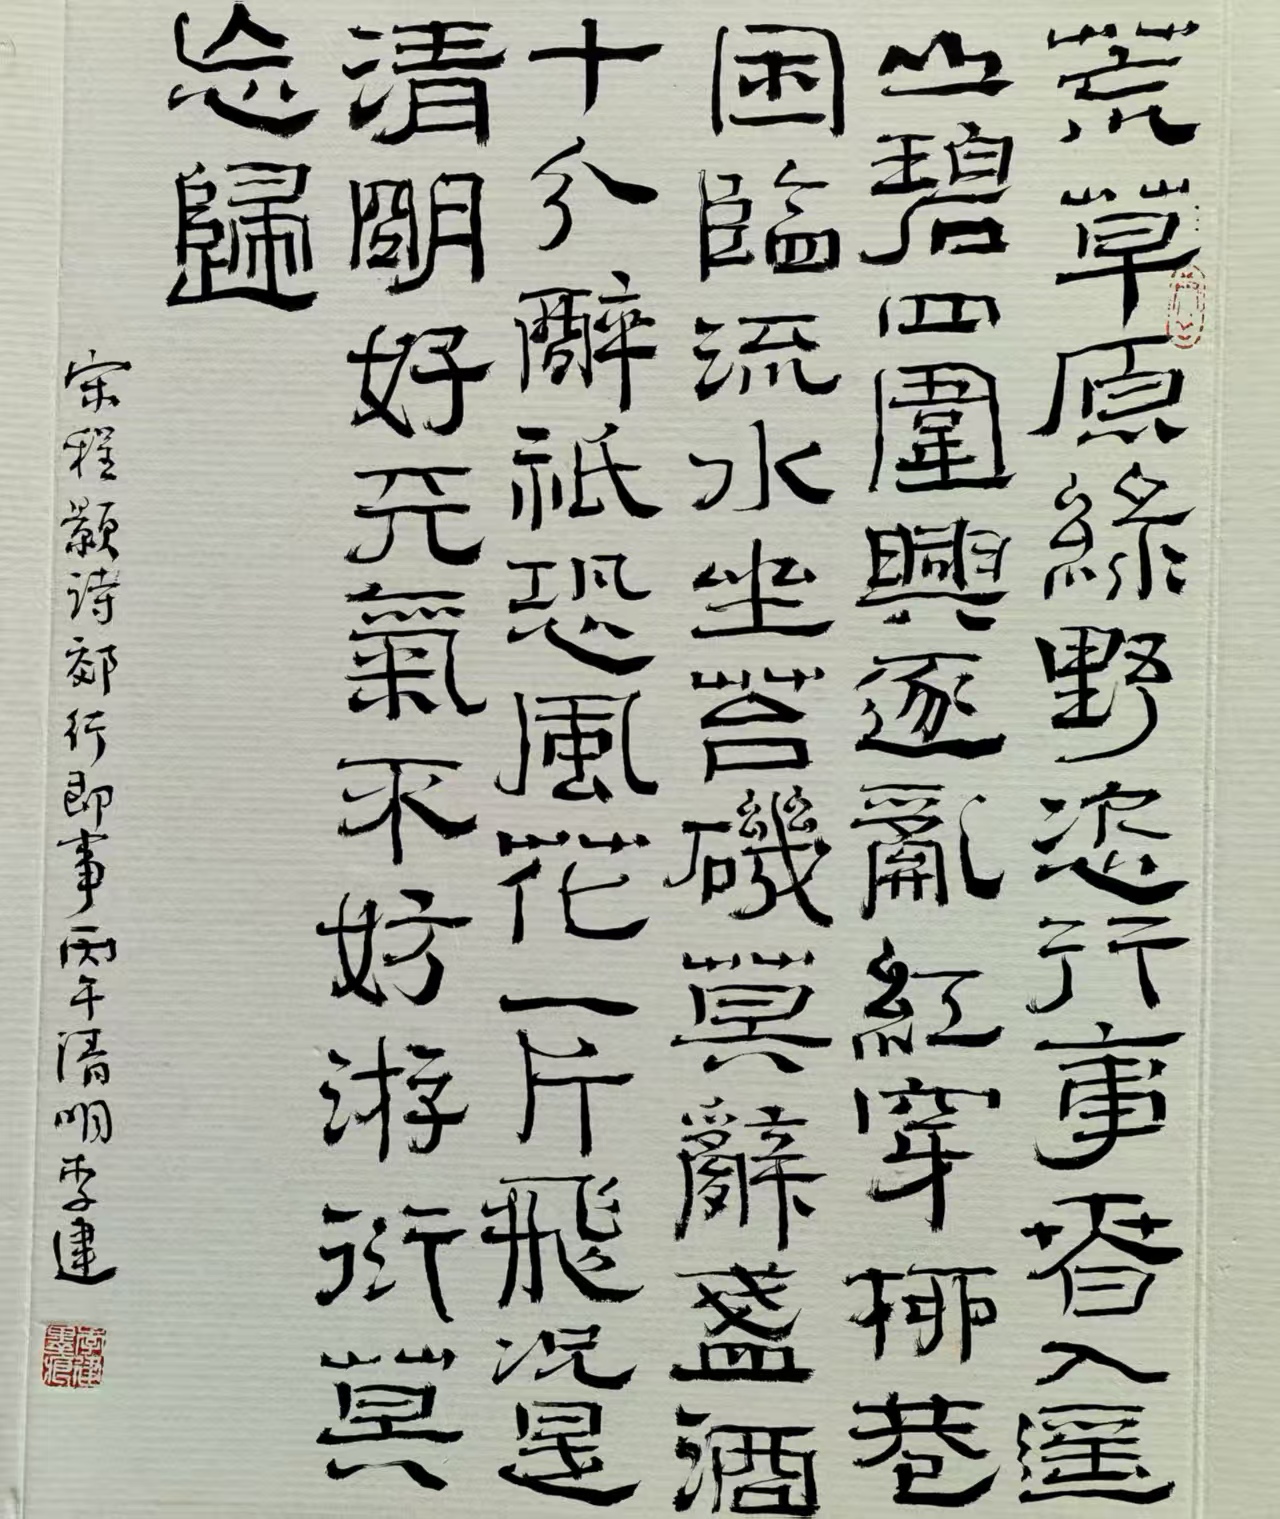 荒草原綠野恣行事春入遥
山碧四圍興逐亂紅穿柳巷
困臨流水坐苔磯莫辭盞酒
十分醉祇恐風花一片飛況是
清明好天氣不妨游衍莫
忘歸
宋程颢诗郊行即事丙午清明李建
李建墨痕